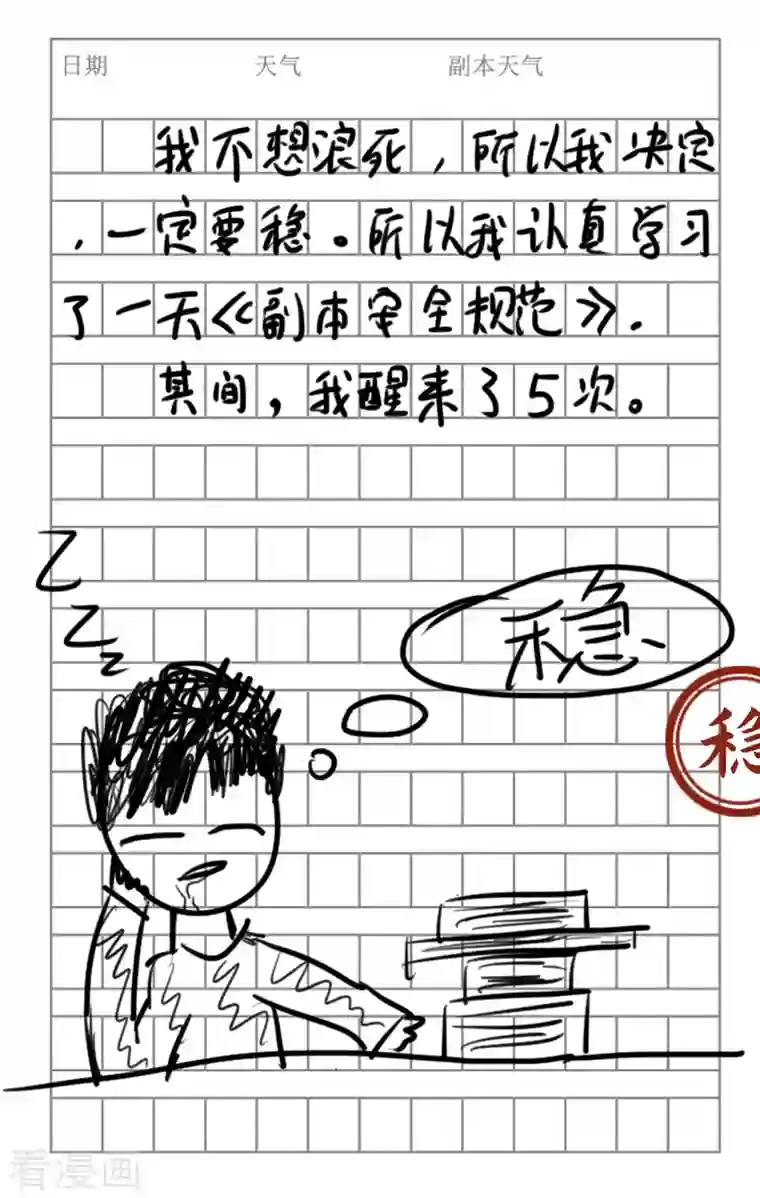 日期 天气 副本天气
我不想浪死，所以我决定
，一定要稳。所以我认真学习
了一天《副本安全规范》.
其间，我醒来了5次。
Z
Z
z
稳
稳
看漫画